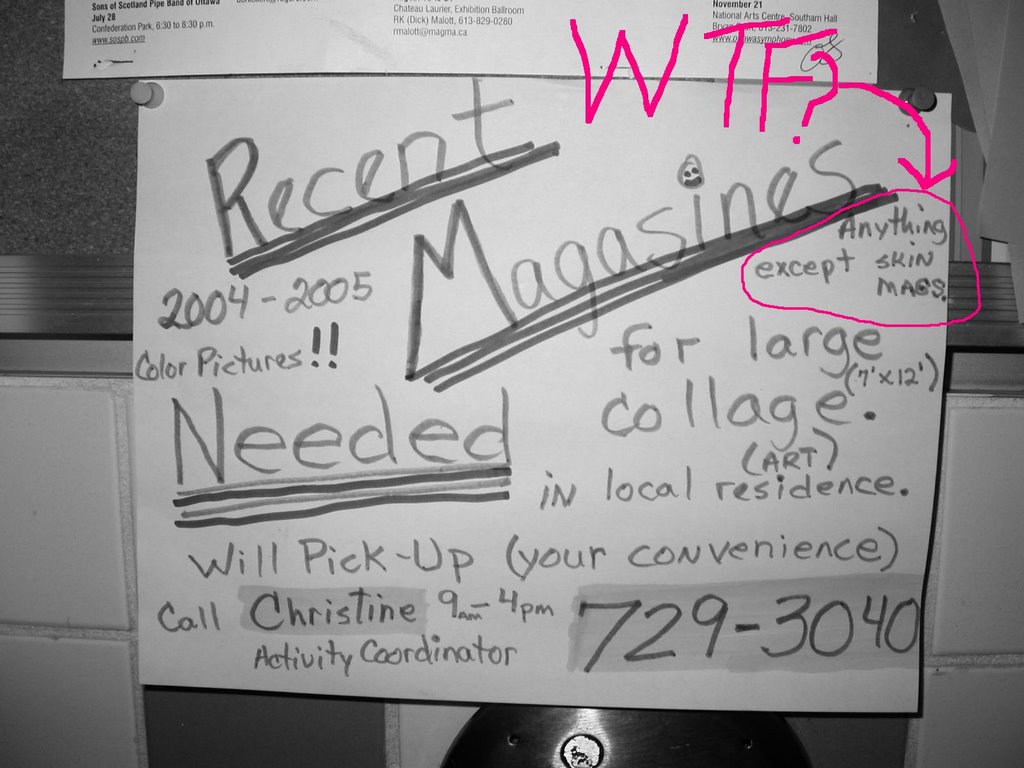 Sons of Scotland Pipe Band of Ottawa
July 28
Confederation Park, 6:30 to 8:30 p.m.
www.sospb.com
Chateau Laurier, Exhibition Ballroom
RK (Dick) Malott, 613-829-0280
rmalott@magma.ca
November 21
National Arts Centre, Southam Hall
WTF?
Recent
Magasines
Anything
except SKIN
MAGS.
2004-2005
Color Pictures!!
for large
(7'x12')
collage.
(ART)
Needed
in local residence.
Will Pick-Up (your convenience)
Call Christine 9AM-4pm 729-3040
Activity Coordinator